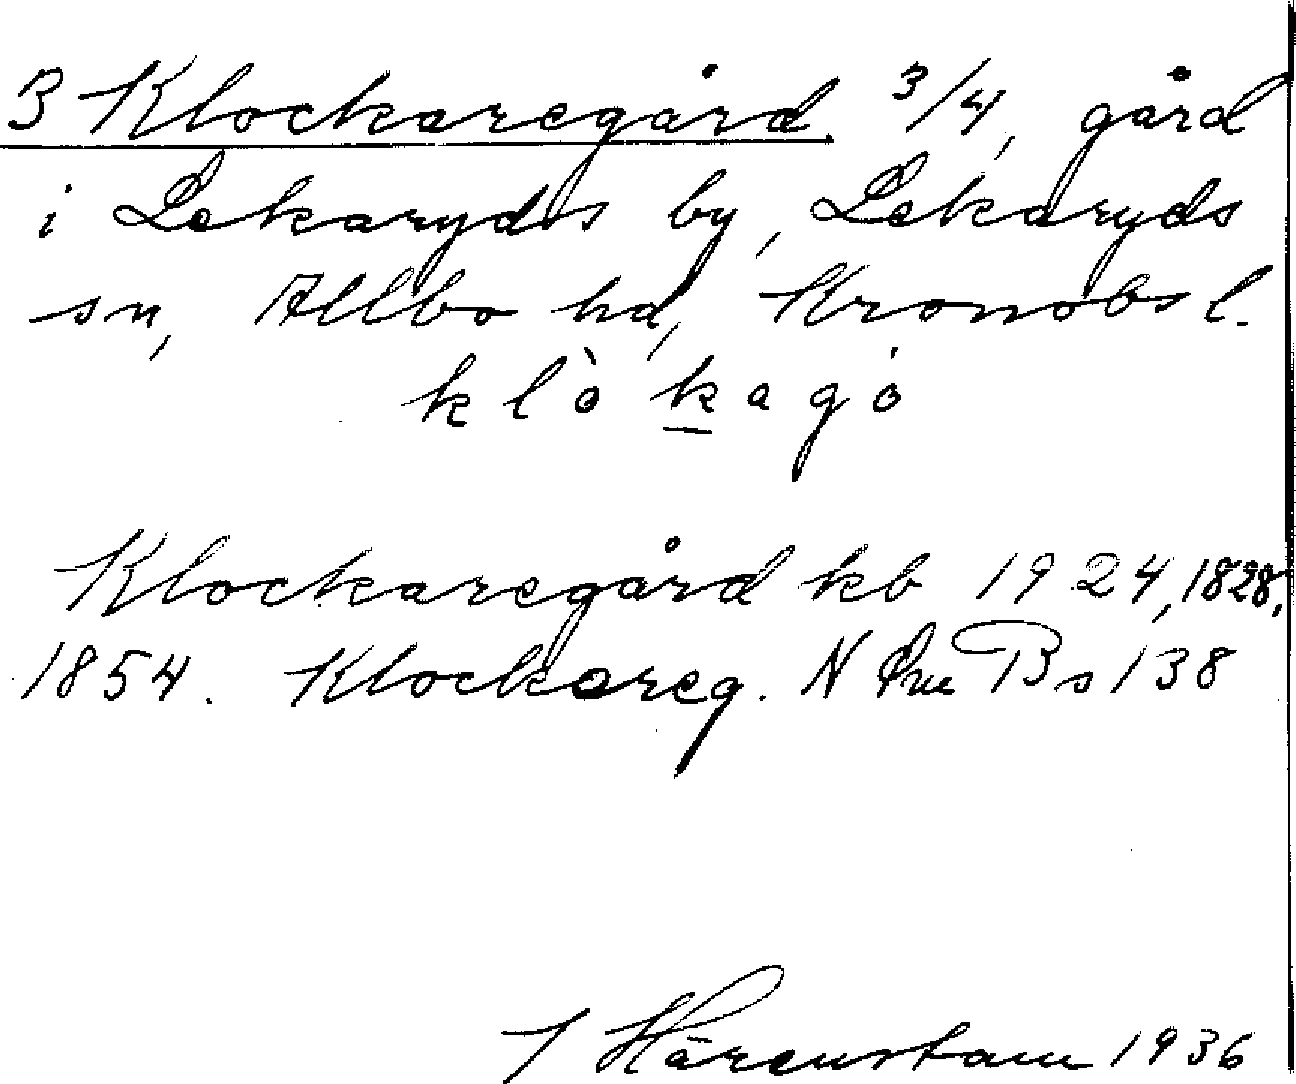 3 Klockaregård. 3/4, gård
i Lekaryds by, Lekaryds
sn, Allbo hd, Kronobs l.
klò kagó
Klockaregård kb 1924, 1828,
1854. Klockareg. N B s 138
J Härenstam 1936